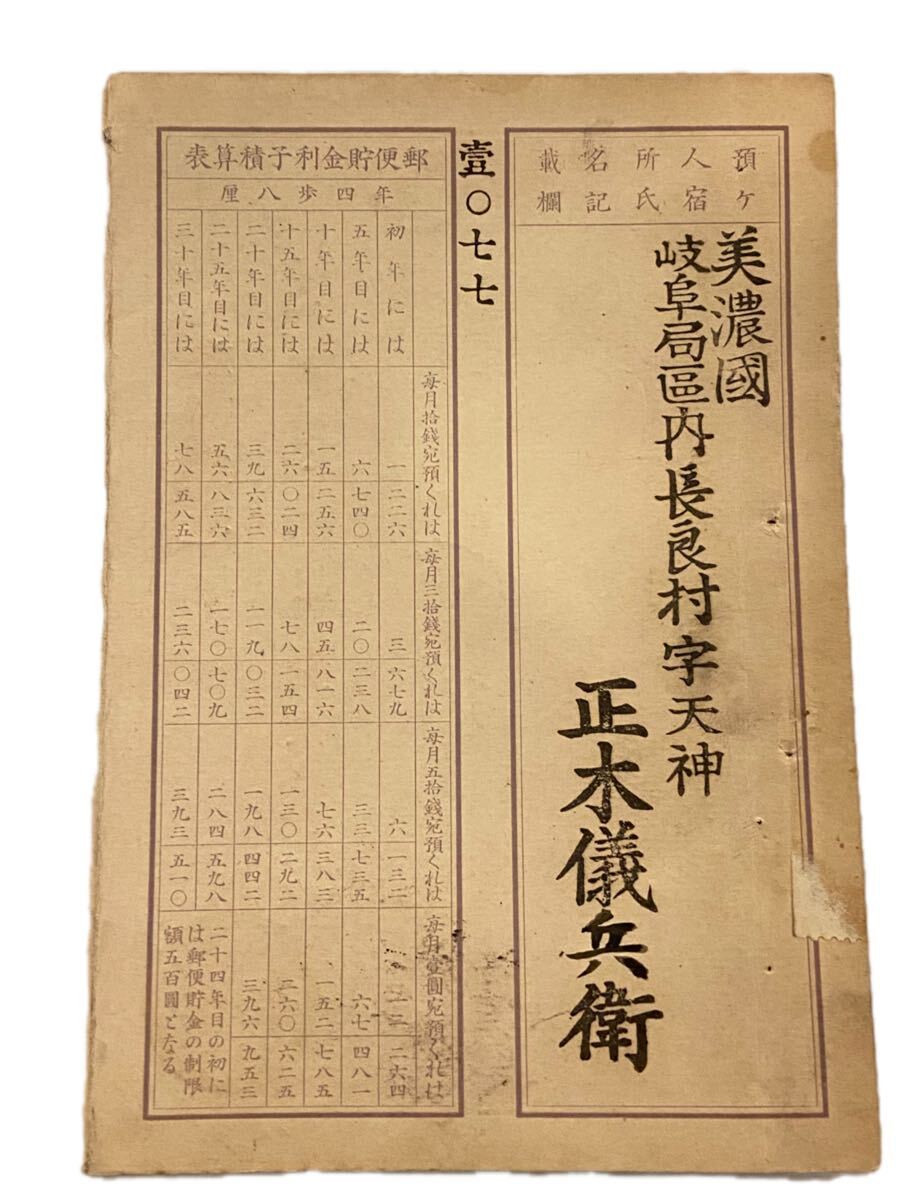 預ケ人宿所氏名記載欄
美濃國
岐阜局區内長良村字天神
正木儀兵衛
壹〇七七
郵便貯金利子積算表
年四歩八厘
毎月拾錢宛預くれは 毎月三拾錢宛預くれは 毎月五拾錢宛預くれは 毎月壹圓宛預くれは
初年には 一 二二六 三 六七九 六 一三二 一二 二六四
五年目には 六 七四〇 二〇 二三八 三三 七三五 六七 四八一
十年目には 一五 二五六 四五 八一六 七六 三八三 一五二 七八五
十五年目には 二六 〇二四 七八 一五四 一三〇 二九二 二六〇 六二五
二十年目には 三九 六三二 一一九 〇三二 一九八 四四二 三九六 九五三
二十五年目には 五六 八三六 一七〇 七〇九 二八四 五九八
三十年目には 七八 五八五 二三六 〇四二 三九三 五一〇
二十四年目の初に
は郵便貯金の制限
額五百圓となる